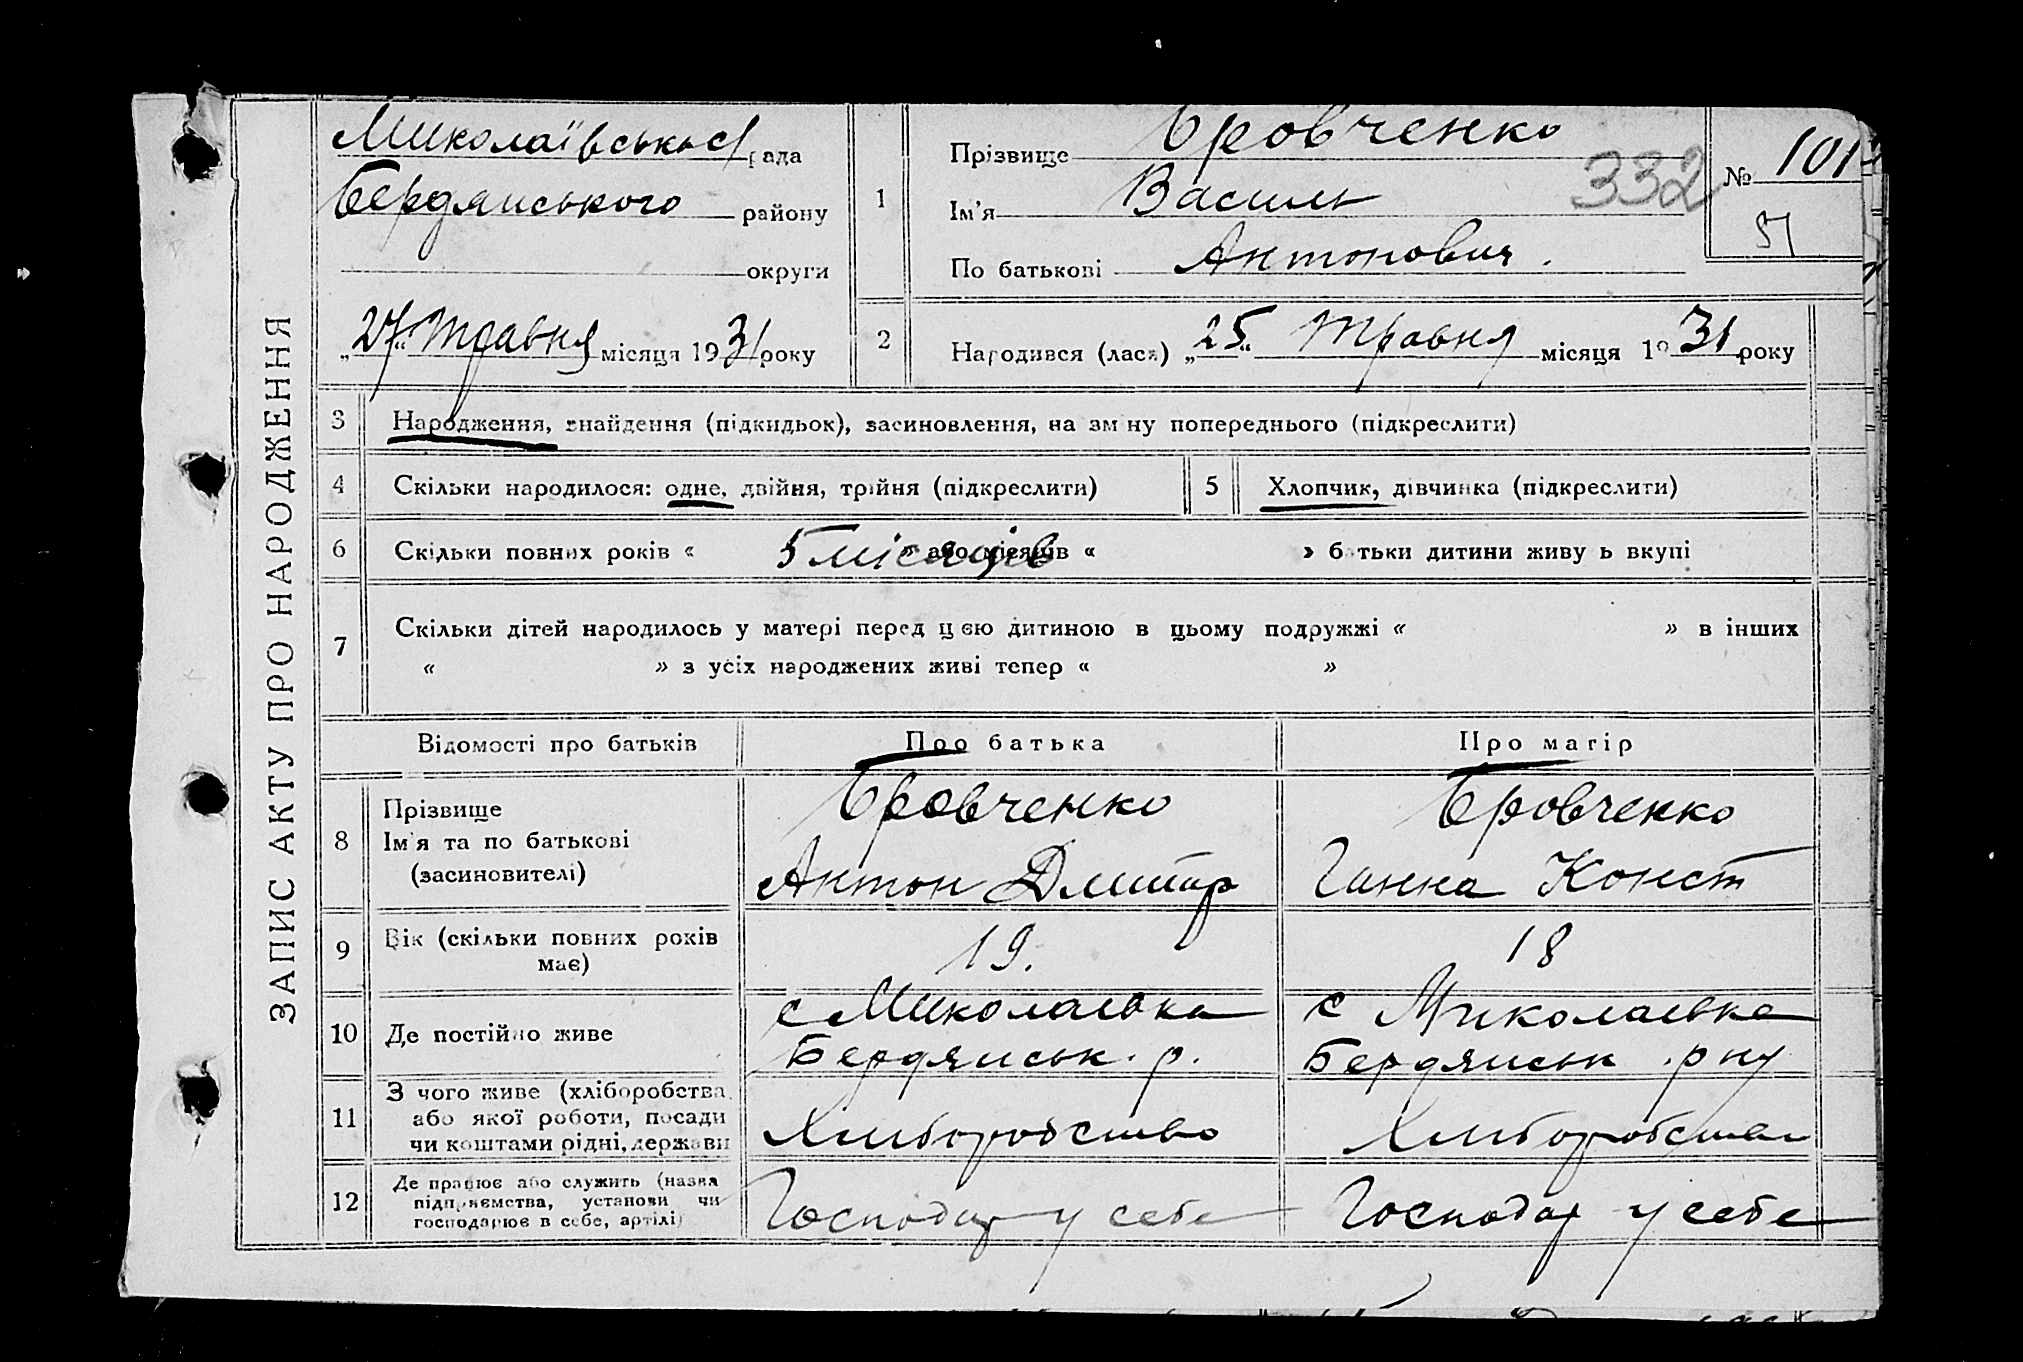 ЗАПИС АКТУ ПРО НАРОДЖЕННЯ
Миколаївська рада
Бердянського району
округи
„27“ травня місяця 1931 року
1
Прізвище Бровченко
Ім'я Василь
По батькові Антонович.
№ 101
332
51
2
Народився (лася) „25“ травня місяця 1931 року
3 Народження, знайдення (підкидьок), засиновлення, на зміну попереднього (підкреслити)
4 Скільки народилося: одне, двійня, трійня (підкреслити)
5 Хлопчик, дівчинка (підкреслити)
6 Скільки повних років « 5 місяців » або місяців « » батьки дитини живуть вкупі
7 Скільки дітей народилось у матері перед цією дитиною в цьому подружжі « » в інших
« » з усіх народжених живі тепер « »
Відомості про батьків Про батька Про матір
8 Прізвище
Ім'я та по батькові
(засиновителі)
Бровченко
Антон Дмитр
Бровченко
Ганна Конст
9 Вік (скільки повних років
має)
19.
18
10 Де постійно живе
с Миколаевка
Бердянськ. р.
с Миколаевка
Бердянськ. р ну
11 З чого живе (хліборобства,
або якої роботи, посади
чи коштами рідні, держави
Хліборобство
Хліборобства
12 Де працює або служить (назва
підприємства, установи чи
господарює в себе, артілі)
Господар у себе
Господар у себе